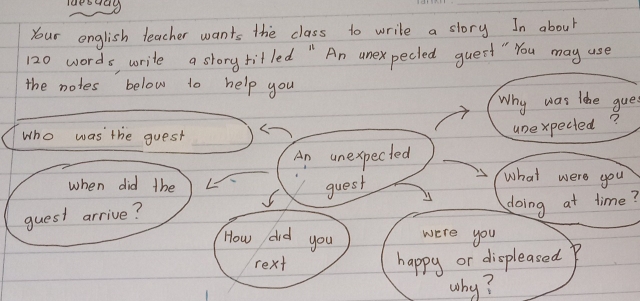 Tuesday
Your english teacher wants the class to write a story In about
120 words, write a story titled "An unexpected guest" You may use
the notes below to help you
Why was the gues
unexpected ?
who was the guest
An unexpected
guest
when did the
guest arrive?
What were you
doing at time?
How did you
rext
were you
happy or displeased ?
why?